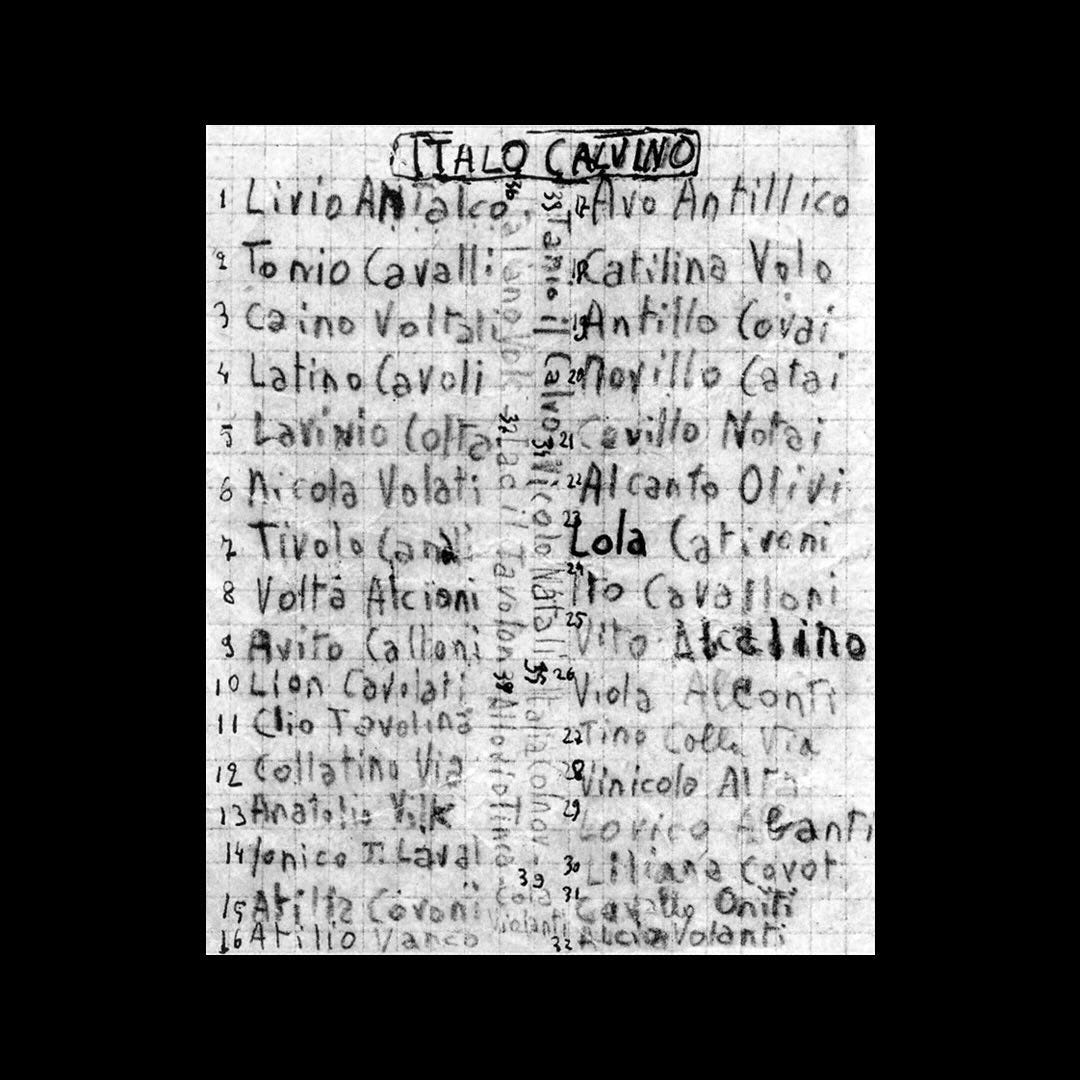 ITALO CALVINO
1 Livio Antalco
2 Tonio Cavalli
3 Caino Voltali
4 Latino Cavoli
5 Lavinio Colta
6 Nicola Volati
7 Tivolo
8 Volta Alcioni
9 Avito Calloni
10 Lion Cavolati
11 Clio Tavolina
12 Collatino Via
13 Anatolio
14 Laval
15 Atilia Covoni
16 Atilio Vanco
36
37 Lao il Tavolon
38 Allodio Tinca
39 Cola Violanti
33 Tanio il Calvo
34 Nicolo Natali
35 Italia Colnov
17 Avo Antillico
18 Catilina Volo
19 Antillo Covai
20 Novillo Catai
21 Cavillo Notai
22 Alcanto Olivi
23 Lola Cativoni
24 Ito Cavalloni
25 Vito Alcalino
26 Viola Alconti
27 Tino Colla Via
28 Vinicolo
29 Lovico
30 Liliana Covot
31 Cavallo Oniti
32 Alcia Volanti